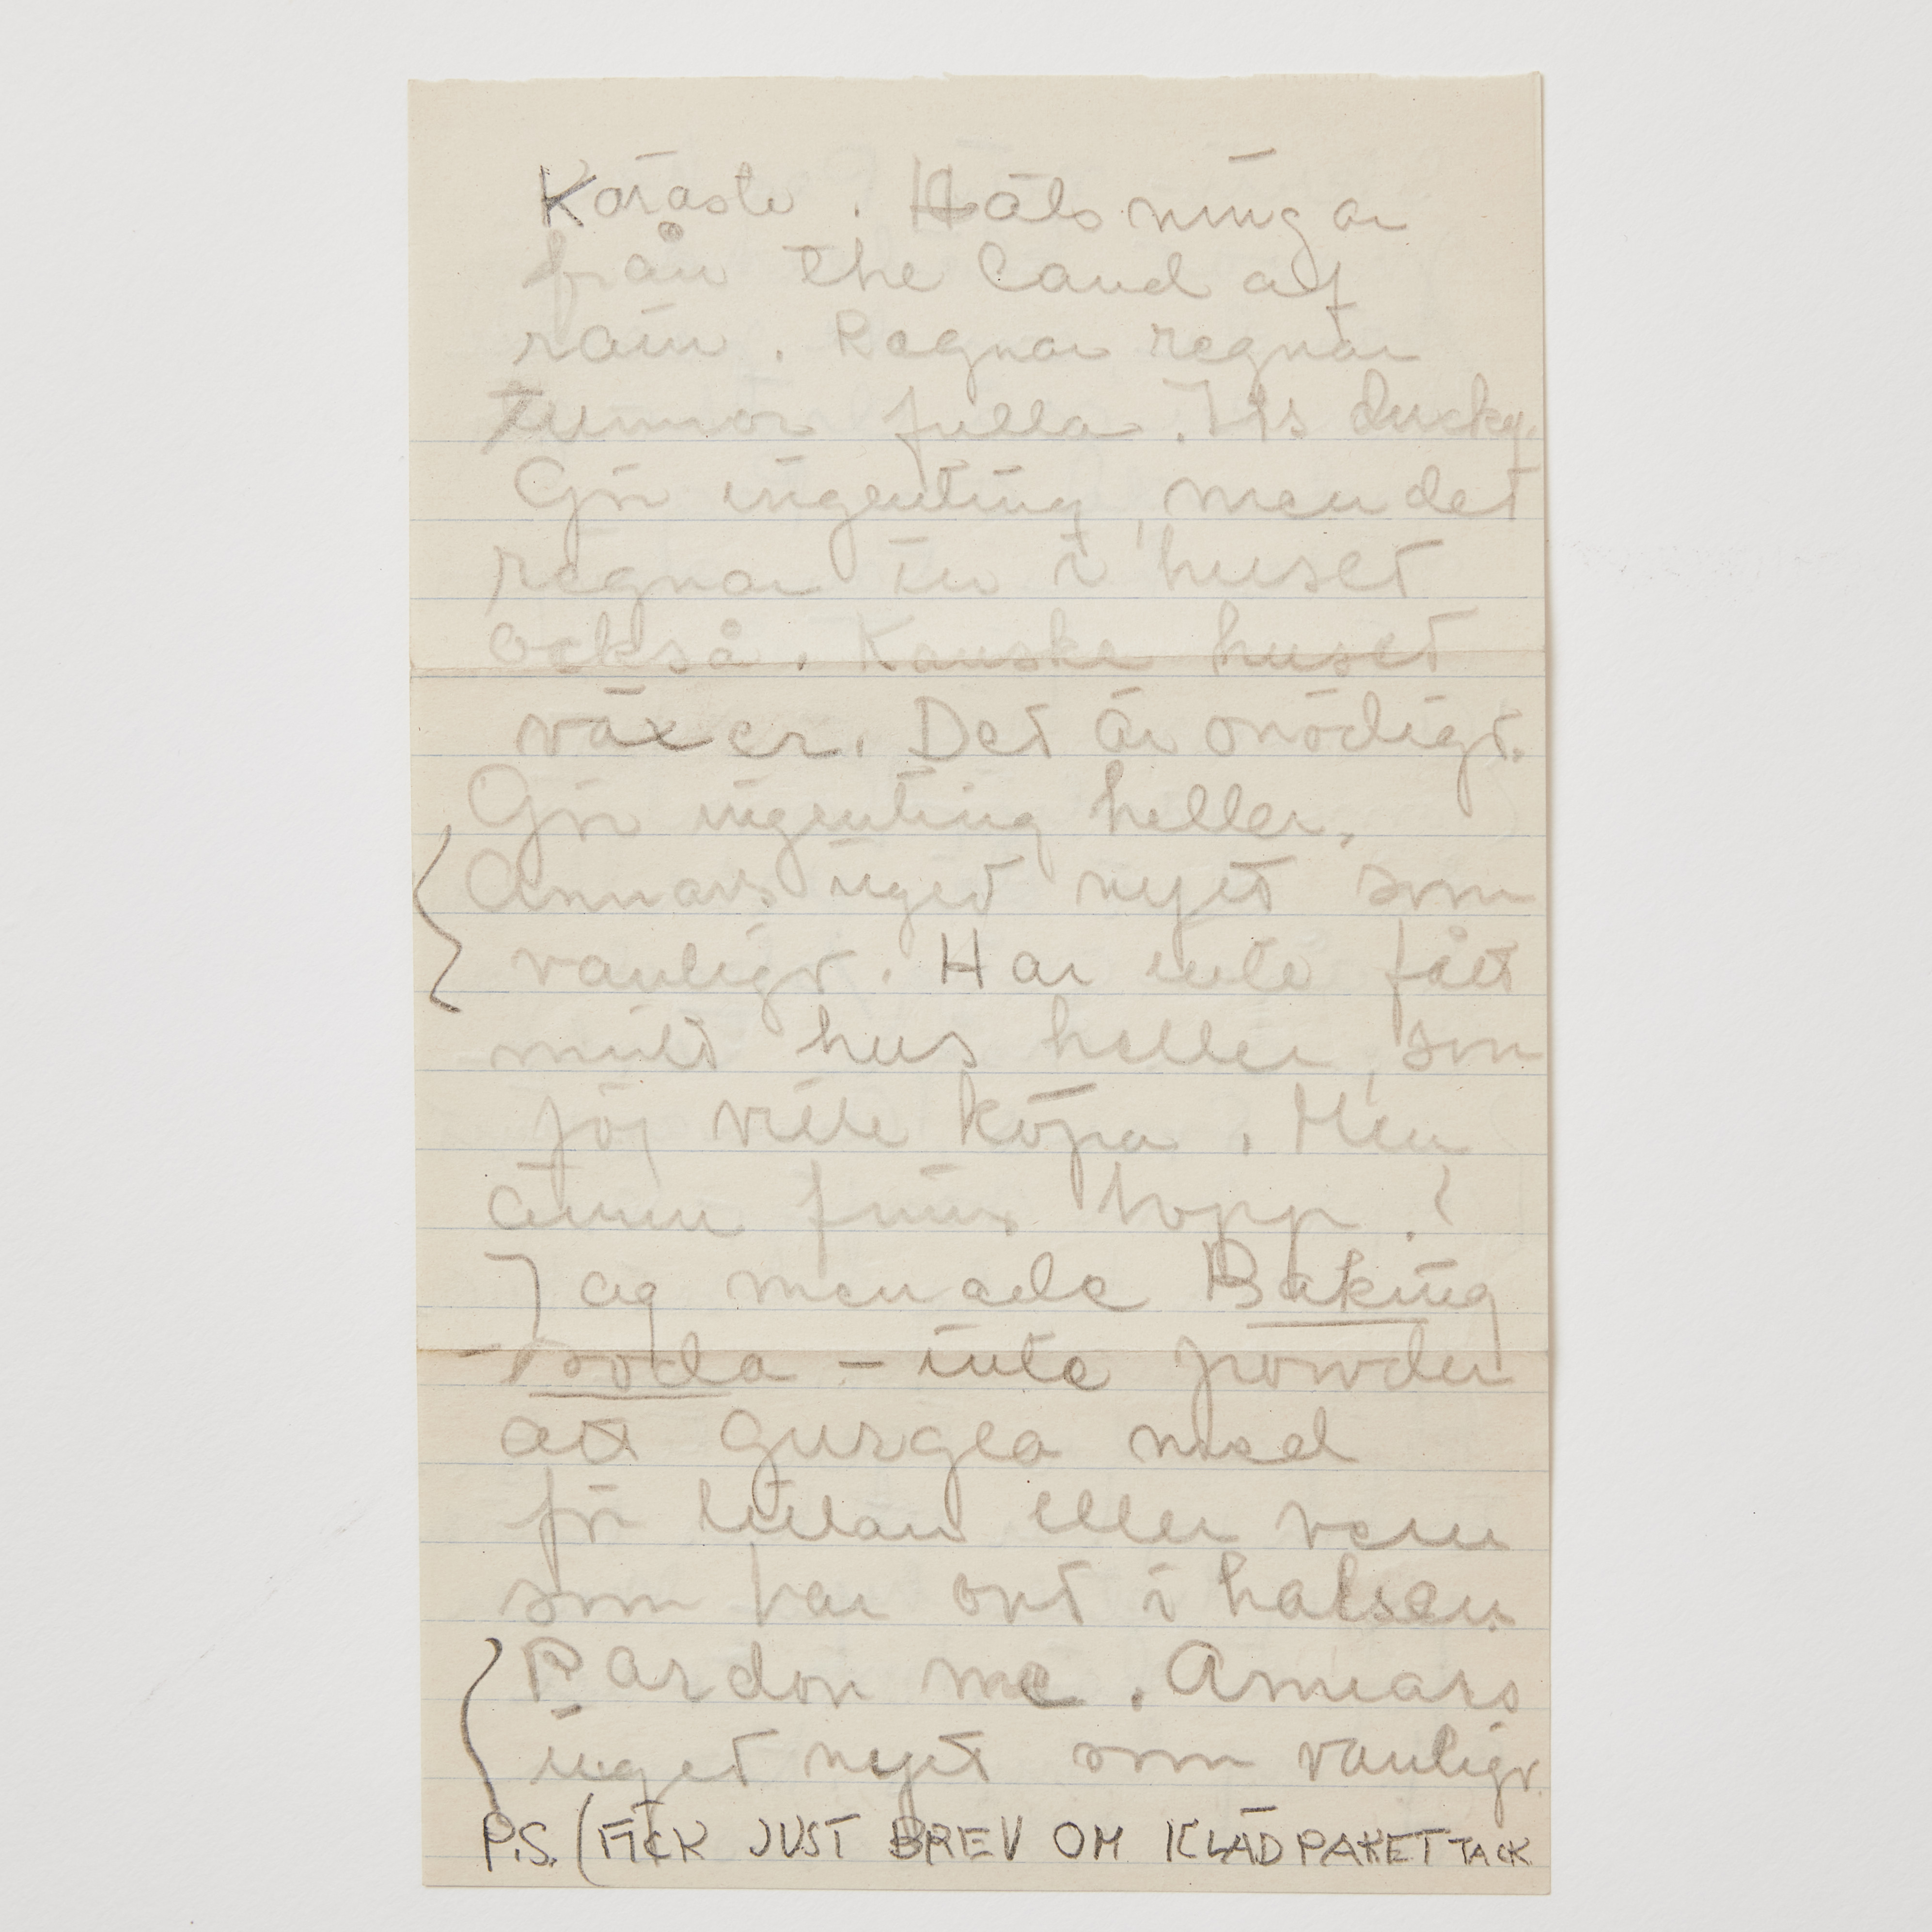 Käraste. Hälsningar
från the land of
rain. Regnar regnar
tunnor fulla. It's ducky.
Gör ingenting, men det
regnar in i huset
också. Kanske huset
växer. Det är onödigt.
Gör ingenting heller.
Annars inget nytt som
vanligt. Har inte fått
mitt hus heller, som
jag ville köpa. Men
ännu finns hopp!
Jag menade Baking
soda – inte powder
att gurgla med
för lillan eller vem
som har ont i halsen.
Pardon me. Annars
inget nytt som vanligt.
P.S. (FICK JUST BREV OM KLÄDPAKET TACK